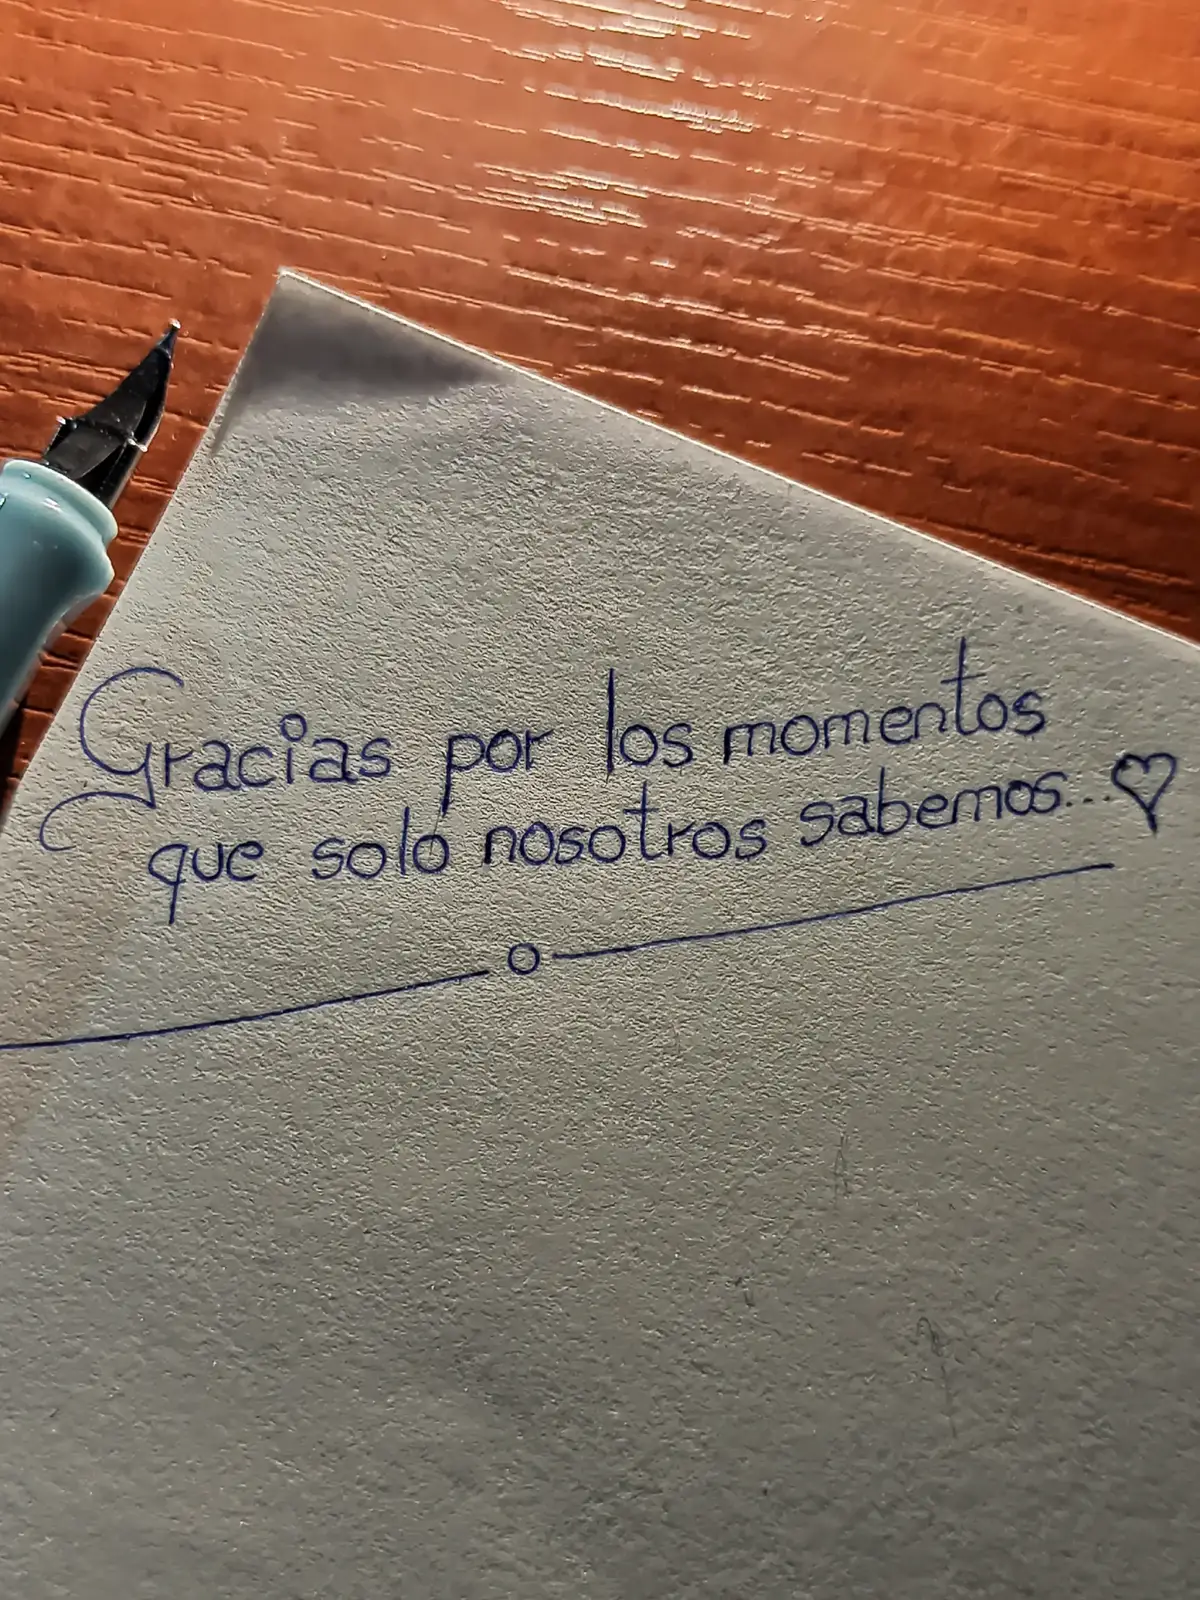 Gracias por los momentos
que solo nosotros sabemos...♡